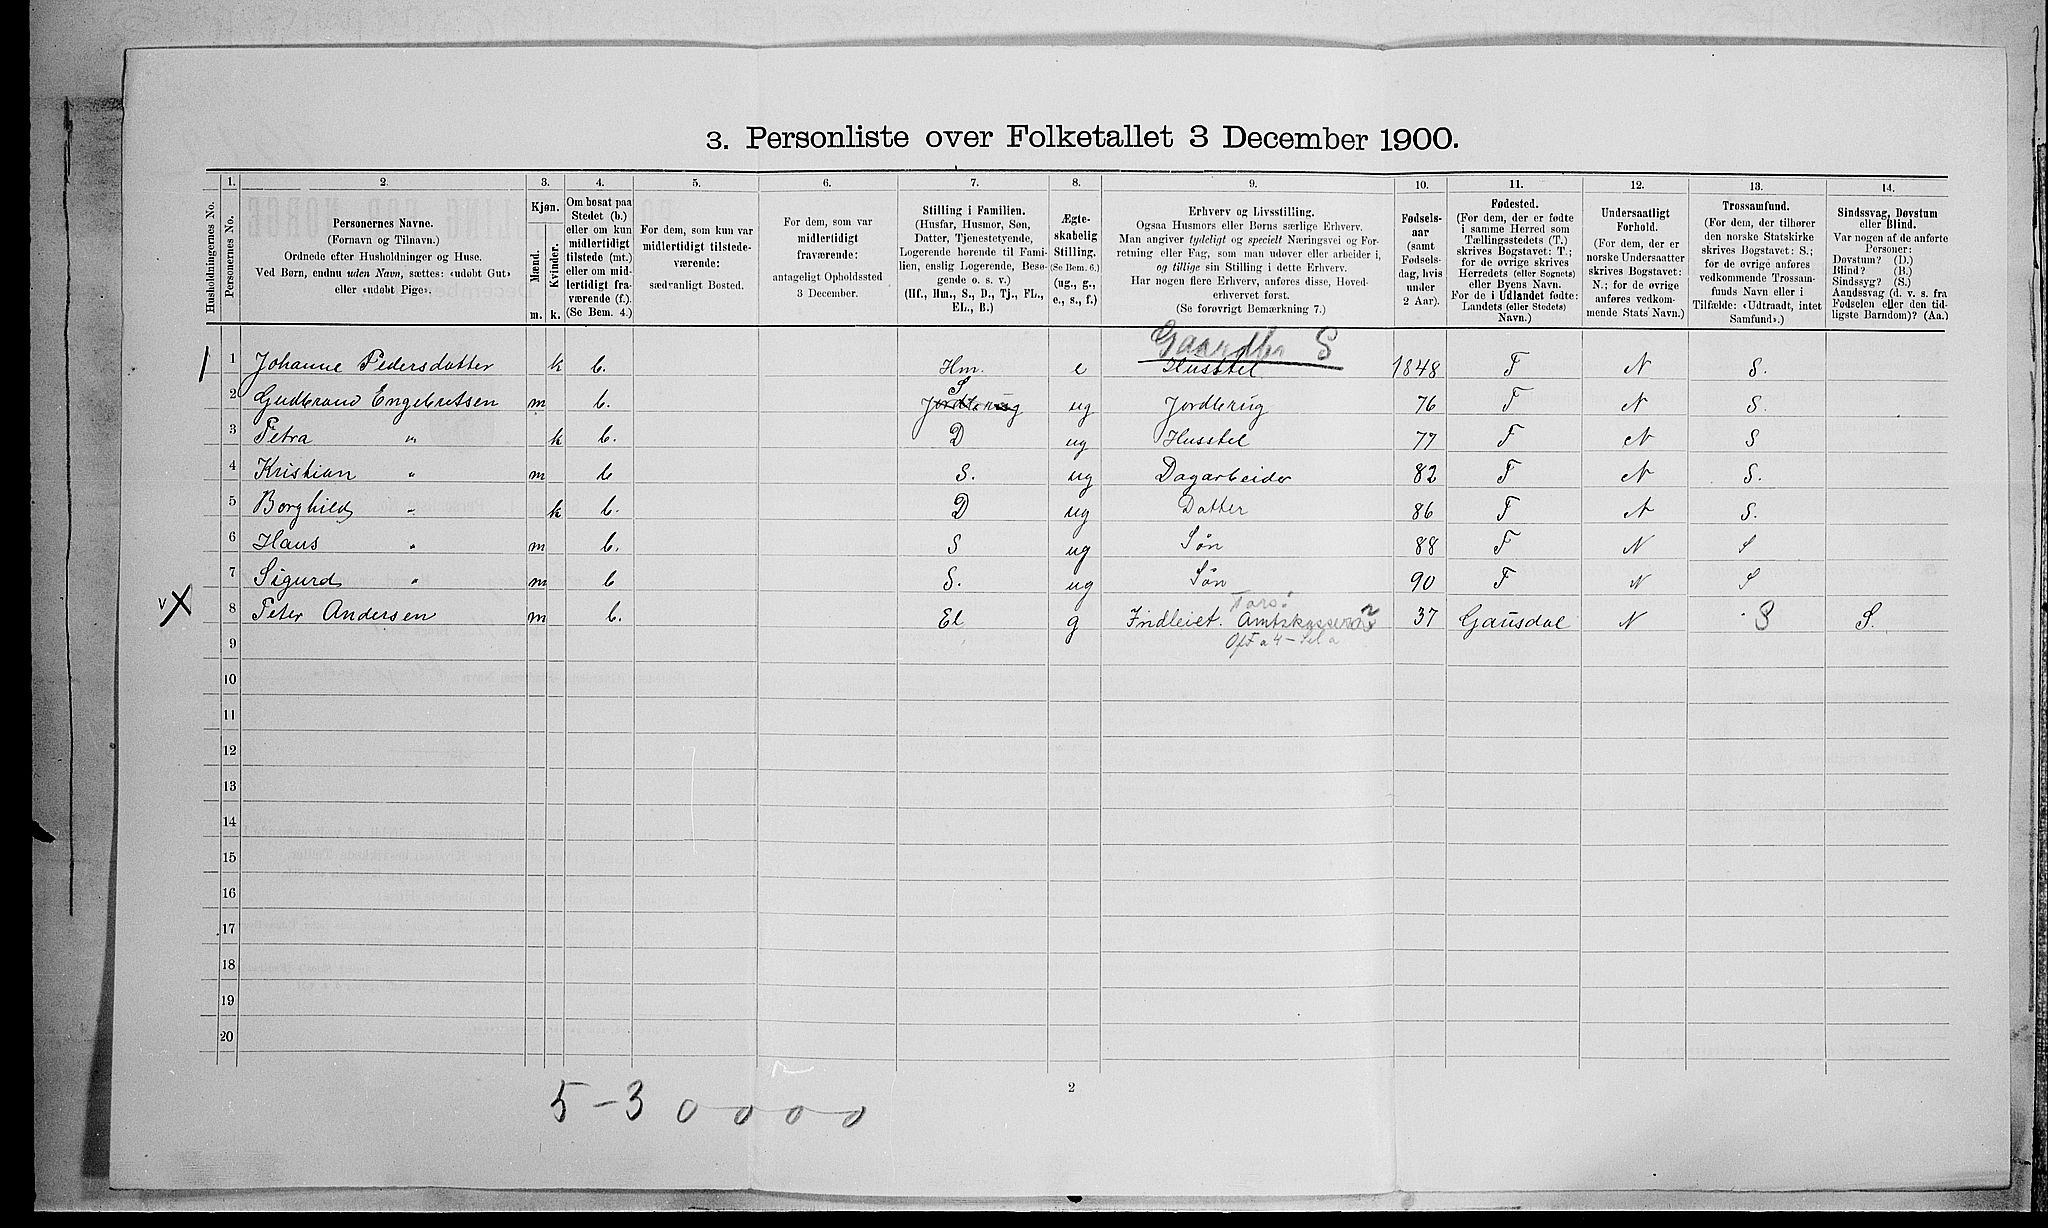 3. Personliste over Folketallet 3 December 1900.
Husholdningernes No.
1. Personernes No.
2. Personernes Navne.
(Fornavn og Tilnavn.)
Ordnede efter Husholdninger og Huse.
Ved Børn, endnu uden Navn, sættes: «udøbt Gut»
eller «udøbt Pige».
3. Kjøn.
Mænd. Kvinder.
m. k.
4. Om bosat paa
Stedet (b.)
eller om kun
midlertidigt
tilstede (mt.)
eller om mid-
lertidigt fra-
værende (f.).
(Se Bem. 4.)
5. For dem, som kun var
midlertidigt tilstede-
værende:
sædvanligt Bosted.
6. For dem, som var
midlertidigt
fraværende:
antageligt Opholdssted
3 December.
7. Stilling i Familien.
(Husfar, Husmor, Søn,
Datter, Tjenestetyende,
Logerende hørende til Fami-
lien, enslig Logerende, Besø-
gende o. s. v.)
(Hf., Hm., S., D., Tj., FL.,
EL., B.)
8. Ægte-
skabelig
Stilling.
(Se Bem. 6.)
(ug., g.,
e., s., f.)
9. Erhverv og Livsstilling.
Ogsaa Husmors eller Børns særlige Erhverv.
Man angiver tydeligt og specielt Næringsvei og For-
retning eller Fag, som man udøver eller arbeider i,
og tillige sin Stilling i dette Erhverv.
Har nogen flere Erhverv, anføres disse, Hoved-
erhvervet først.
(Se forøvrigt Bemærkning 7.)
10. Fødsels-
aar
(samt
Fødsels-
dag, hvis
under
2 Aar).
11. Fødested.
(For dem, der er fødte
i samme Herred som
Tællingsstedets (T.)
skrives Bogstavet: T.;
for de øvrige skrives
Herredets (eller Sognets)
eller Byens Navn.
For de i Udlandet fødte:
Landets (eller Stedets)
Navn.)
12. Undersaatligt
Forhold.
(For dem, der er
norske Undersaatter
skrives Bogstavet:
N.; for de øvrige
anføres vedkom-
mende Stats Navn.)
13. Trossamfund.
(For dem, der tilhører
den norske Statskirke
skrives Bogstavet: S.;
for de øvrige anføres
vedkommende Trossam-
funds Navn eller i
Tilfælde: «Udtraadt, intet
Samfund».)
14. Sindssvag, Døvstum
eller Blind.
Var nogen af de anførte
Personer:
Døvstum? (D.)
Blind? (B.)
Sindssyg? (S.)
Aandssvag (d. v. s. fra
Fødselen eller den tid-
ligste Barndom)? (Aa.)
Gaardbr S
1 Johanne Pedersdatter k b. Hm. e Husstel 1848 T N S.
2 Gudbrand Engebretsen m b. S Jordbrug ug Jordbrug 76 T N S.
3 Petra " k b. D ug Husstel 77 T N S
4 Kristian " m b S. ug Dagarbeider 82 T N S.
5 Borghild " k b. D ug Datter 86 T N S.
6 Hans " m b. S ug Søn 88 T N S
7 Sigurd " m b S. ug Søn 90 T N S
v X 8 Peter Andersen m b. El g Indleiet. Amtskassen 37 Gausdal N S S.
9
10
11
12
13
14
15
16
17
18
19
20
2
5-30000